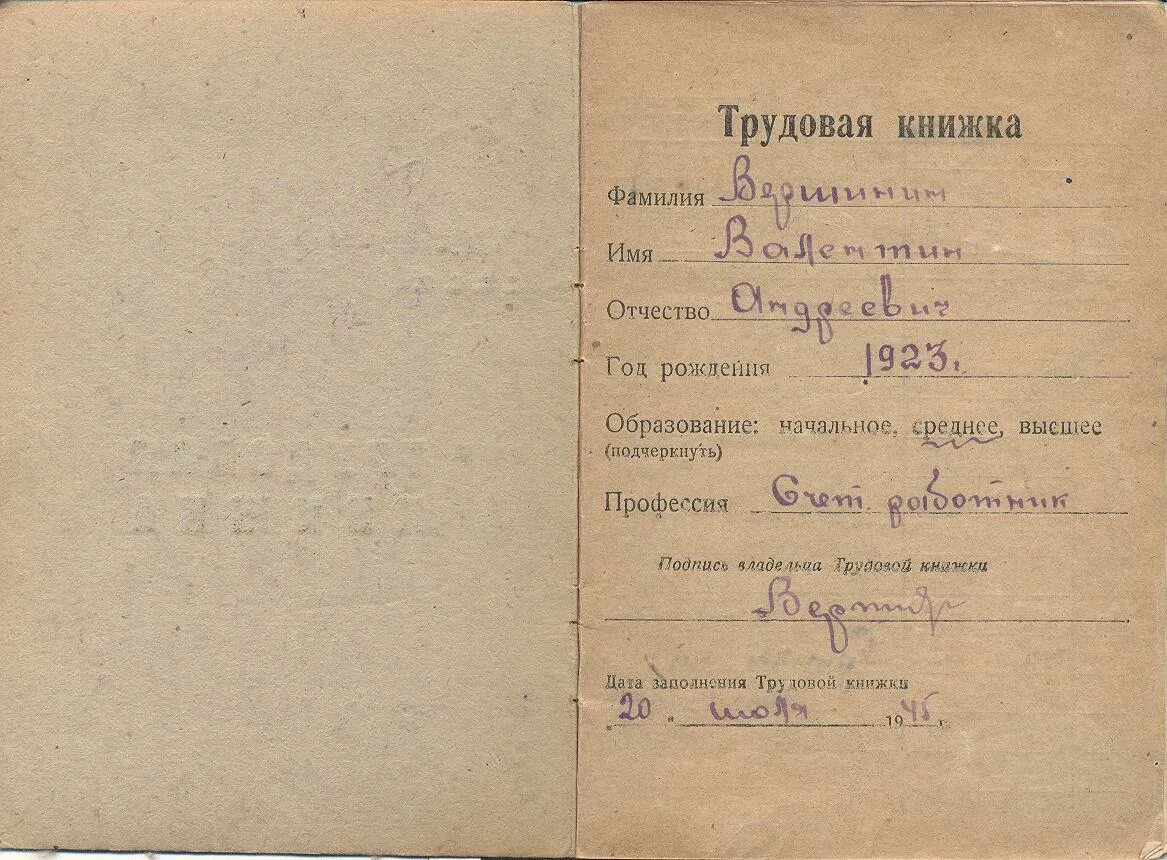 Трудовая книжка
Фамилия Вершинин
Имя Валентин
Отчество Андреевич
Год рождения 1923 г.
Образование: начальное, среднее, высшее
(подчеркнуть)
Профессия Счет. работник
Подпись владельца Трудовой книжки
Дата заполнения Трудовой книжки
20 " июля 1945 г.